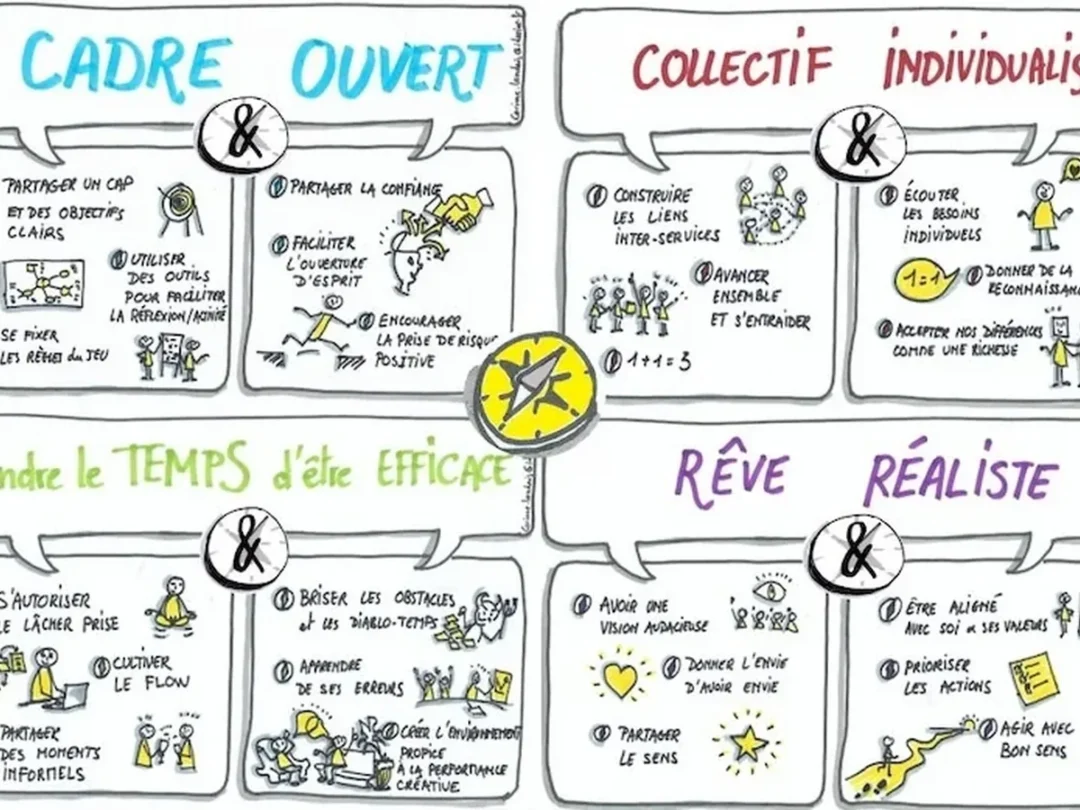 CADRE OUVERT
&
PARTAGER UN CAP
ET DES OBJECTIFS
CLAIRS
UTILISER
DES OUTILS
POUR FACILITER
LA RÉFLEXION/ACTIVITÉ
SE FIXER
LES RÈGLES du JEU
PARTAGER LA CONFIANCE
FACILITER
L'OUVERTURE
D'ESPRIT
ENCOURAGER
LA PRISE DE RISQUE
POSITIVE
COLLECTIF INDIVIDUALIS
&
CONSTRUIRE
LES LIENS
INTER-SERVICES
AVANCER
ENSEMBLE
ET S'ENTRAIDER
1+1=3
ÉCOUTER
LES BESOINS
INDIVIDUELS
1=1
DONNER DE LA
RECONNAISSANC
ACCEPTER NOS DIFFÉRENCES
COMME UNE RICHESSE
ndre le TEMPS d'être EFFICACE
&
S'AUTORISER
LE LÂCHER PRISE
CULTIVER
LE FLOW
PARTAGER
DES MOMENTS
INFORMELS
BRISER LES OBSTACLES
et LES DIABLO-TEMPS
APPRENDRE
DE SES ERREURS
CRÉER L'ENVIRONNEMENT
PROPICE
À LA PERFORMANCE
CRÉATIVE
RÊVE RÉALISTE
&
AVOIR UNE
VISION AUDACIEUSE
DONNER L'ENVIE
D'AVOIR ENVIE
PARTAGER
LE SENS
ÊTRE ALIGNÉ
AVEC SOI & SES VALEURS
PRIORISER
LES ACTIONS
AGIR AVEC
BON SENS